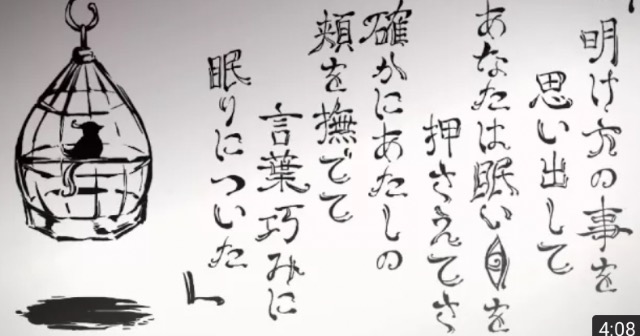 「
明け方の事を
思い出して
あなたは眠い目を
押さえてさ
確かにあたしの
頬を撫でて
言葉巧みに
眠りについた
」
4:08